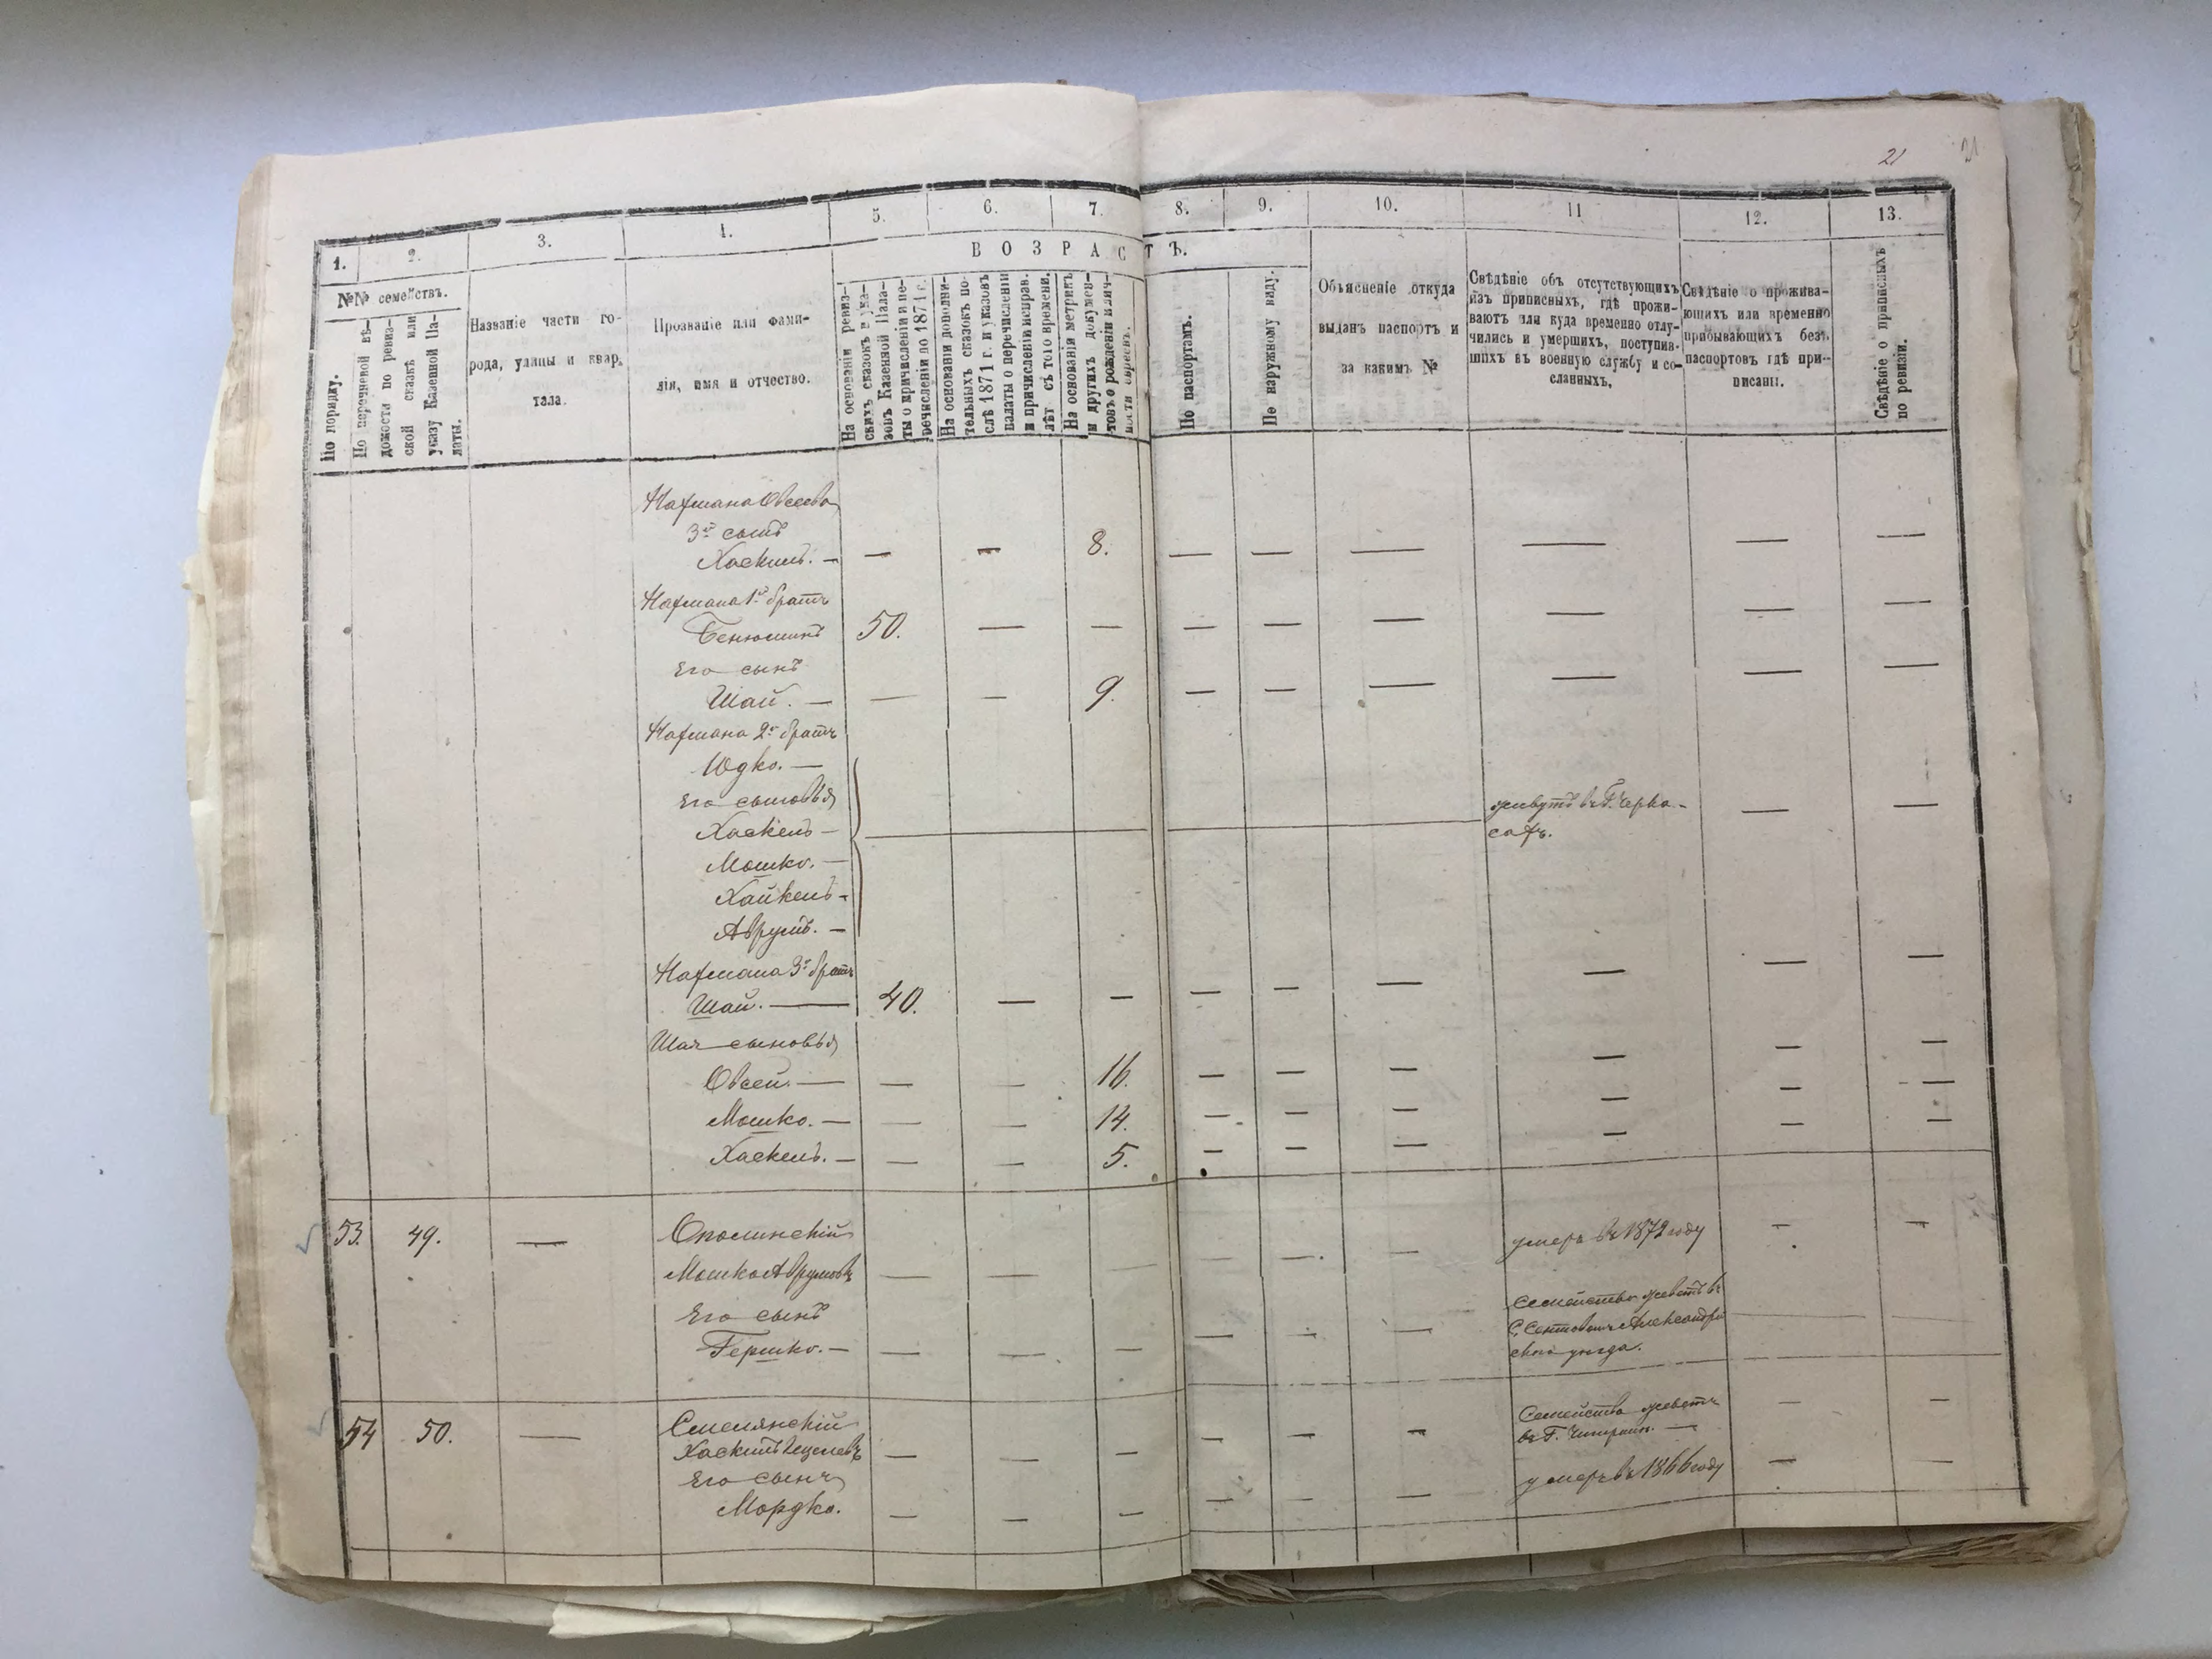 21
21
1.
2.
3.
4.
5.
6.
7.
8.
9.
10.
11
12.
13.
ВОЗРАСТЪ.
№№ семействъ.
По порядку.
По перечневой вѣ-
домости по ревиз-
ской сказкѣ или
указу Казенной Па-
латы.
Названіе части го-
рода, улицы и квар-
тала.
Прозваніе или фами-
лія, имя и отчество.
На основаніи ревиз-
скихъ сказокъ и ука-
зовъ Казенной Пала-
ты о причисленіи и пе-
речисленіи до 1871 г.
На основаніи дополни-
тельныхъ сказокъ по-
слѣ 1871 г. и указовъ
палаты о перечисленіи
и причисленіи исправ.
лѣт съ того времени.
На основаніи метрикъ
и другихъ докумен-
товъ о рожденіи и лич-
ности евреевъ.
По паспортамъ.
По наружному виду.
Объясненіе откуда
выданъ паспортъ и
за какимъ №
Свѣдѣніе объ отсутствующихъ
изъ приписныхъ, гдѣ прожи-
ваютъ или куда временно отлу-
чились и умершихъ, поступив-
шихъ въ военную службу и со-
сланныхъ.
Свѣдѣніе о прожива-
ющихъ или временно
прибывающихъ безъ
паспортовъ гдѣ при-
писаны.
Свѣдѣніе о приписныхъ
по ревизіи.
Нахмана Овсеева
3й сынъ
Хаскиль. — — — 8. — — — — — —
Нахмана 1й братъ
Бенюминъ 50. — — — — — — — —
Его сынъ
Шай. — — — 9. — — — — — —
Нахмана 2й братъ
Юдко. —
Его сыновья
Хаскель —
Мошко. —
Хайкель -
Аврумъ. —
живутъ въ Г. Черка-
сахъ. — —
Нахмана 3й братъ
Шай. — 40. — — — — — — — —
Шая сыновья
Овсей. — — — 16. — — — — — —
Мошко. — — — 14. — — — — — —
Хаскель. — — — 5. — — — — — —
53. 49. — Ополинскій
Мошко Аврумовъ — — — — — — умеръ въ 1872 году — —
Его сынъ
Гершко. — — — — — — —
Семейство живетъ въ
Александрій
скаго уѣзда.
54 50. — Смелянскій
Хаскиль — — — — —
Семейство живетъ
въ Г. Чигринѣ. — — —
Его сынъ
Мордко. — — — — — — умеръ въ 1866 году — —